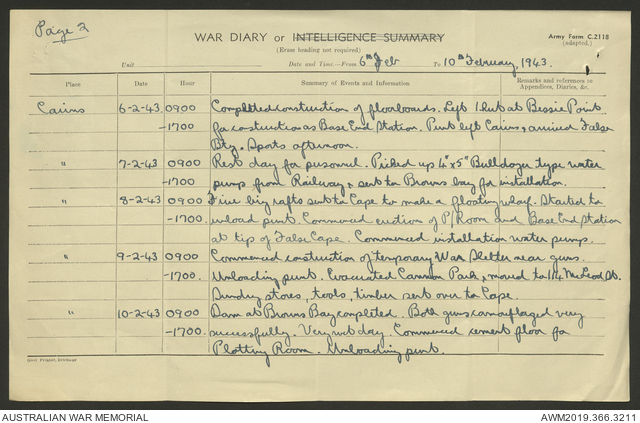 Page 2
WAR DIARY or INTELLIGENCE SUMMARY
Army Form C.2118
(adapted.)
(Erase heading not required)
Unit
Date and Time.—From 6th Feb To 10th February, 1943.
Place
Date
Hour
Summary of Events and Information
Remarks and references in
Appendices, Diaries, &c.
Cairns 6-2-43 0900 Completed construction of floorboards. Left 1 hut at Bessie Point
-1700 for construction as Base End Station. Punt left Cairns & arrived False
Bty. Sports afternoon.
" 7-2-43 0900 Rest day for personnel. Picked up 4"x5" Bulldozer type water
-1700 pump from Railway & sent to Browns bay for installation.
" 8-2-43 0900 Five big rafts sent to Cape to make a floating wharf. Started to
-1700. unload punt. Commenced erection of P/Room and Base End Station
at tip of False Cape. Commenced installation water pumps.
" 9-2-43 0900 Commenced construction of temporary War Shelter near guns.
-1700. Unloading punt. Evacuated Cannon Park, & moved to 114 McLeod St.
Sundry stores, tools, timber sent over to Cape.
" 10-2-43 0900 Dam at Browns Bay completed. Both guns camouflaged very
-1700. successfully. Very wet day. Commenced cement floor for
Plotting Room. Unloading punt.
Govt. Printer, Brisbane
AUSTRALIAN WAR MEMORIAL
AWM2019.366.3211